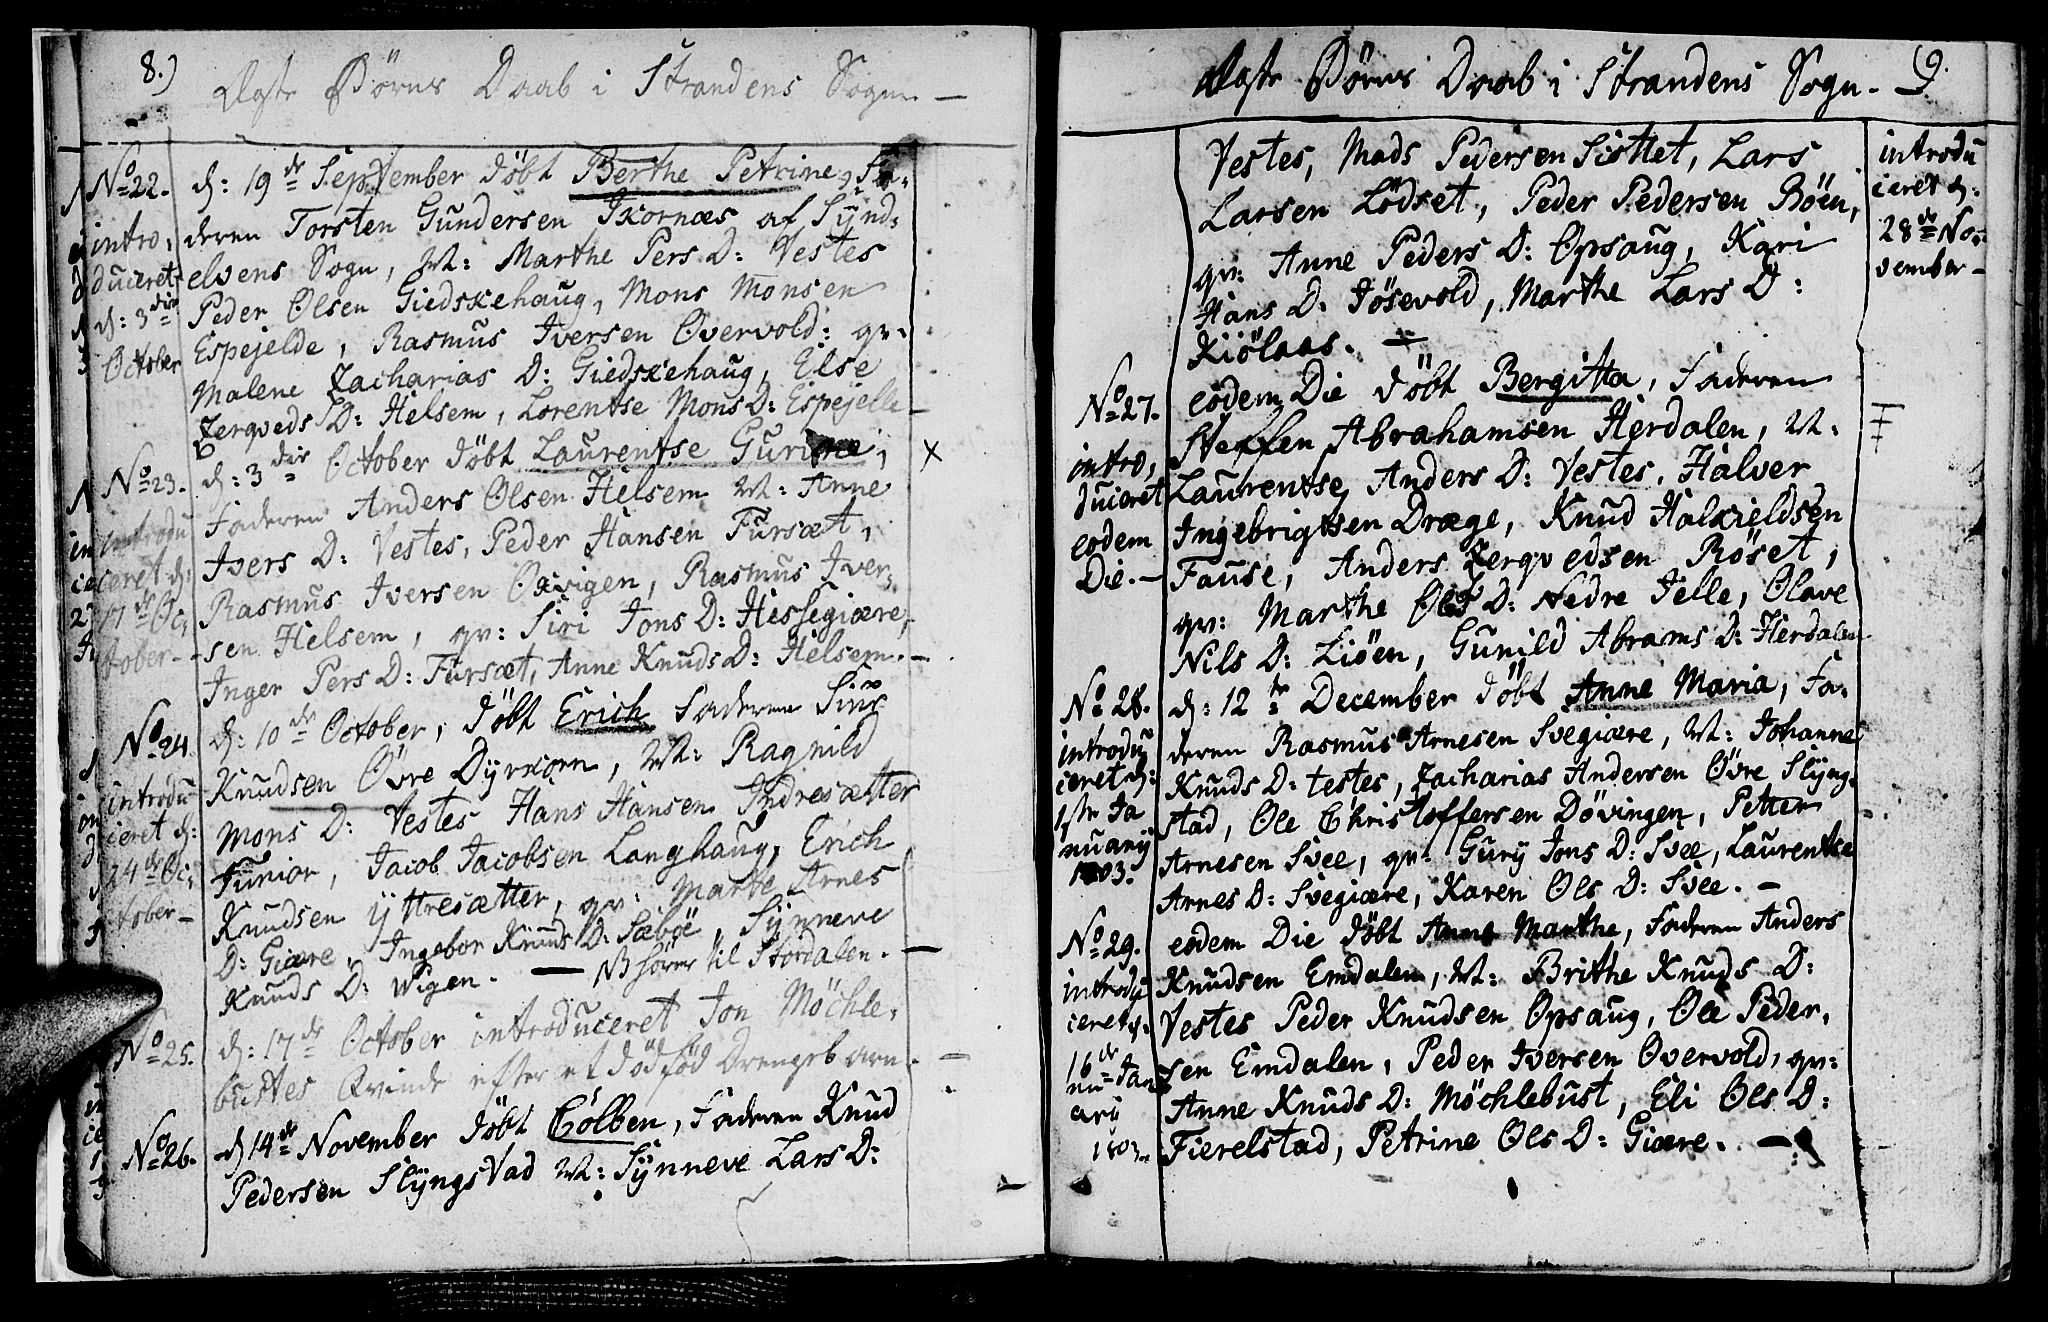 8.)
Ægte Børns Daab i Strandens Sogn —
No 22.
intro,
duceret
d: 3die
October
d: 19de September døbt Berthe Petrine, Fa-
deren Torsten Gundersen Ikornæs af Synd:
elvens Sogn, M: Marthe Pers D: Vestes
Peder Olsen Giedskehaug, Mons Monsen
Espejelde, Rasmus Iversen Overvold: qv:
Malene Zacharias D: Giedskehaug, Else
Zergveds D: Helsem, Lorentse Mons D: Espejelle —
No 23.
introdu
ceret d:
17de Oc,
tober —
d: 3die October døbt Laurentse Gurine,
Faderen Anders Olsen Helsem M: Anne
Ivers D: Vestes, Peder Hansen Fursæt,
Rasmus Iversen Oxvigen, Rasmus Iver,
sen Helsem, qv: Siri Jons D: Hessegiære,
Inger Pers D: Fursæt, Anne Knuds D: Helsem. —
X
No 24
introdu
ceret d:
24de Oc,
tober —
d: 10de October, døbt Erich Faderen Siur
Knudsen Øvre Dyrkorn, M: Ragnild
Mons D: Vestes Hans Hansen Indresætter
Junior, Jacob Jacobsen Langhaug, Erich
Knudsen Yttresætter, qv: Marte Arnes
D: Giære, Ingebor Knuds D: Sæbøe, Synneve
Knuds D: Wigen. — NB hører til Stordalen. —
No 25.
d: 17de October introduceret Jon Möchle,
bustes Qvinde efter et dødfød Drengebarn. —
No 26.
d 14de November døbt Colben, Faderen Knud
Pedersen Slyngstad M: Synneve Lars D:
Ægte Børns Daab i Strandens Sogn. —
9.
Vestes, Mads Pedersen Sisttet, Lars
Larsen Lødset, Peder Pedersen Röen,
qv: Anne Peders D: Opsaug, Kari
Hans D: Jösevold, Marthe Lars D:
Kiölaas. —
introdu
ceret d:
28de No,
vember —
No 27.
intro,
duceret
eodem
Die. —
eodem Die døbt Bergitta, Faderen
Steffen Abrahamsen Herdalen, M.
Laurentse Anders D: Vestes, Halver
Ingebrigtsen Dræge, Knud Halkieldsen
Fause, Anders Zergvedsen Røset,
qv: Marthe Ols D: Nedre Jelle, Olave
Nils D: Liøen, Gunild Abrams D: Herdalen
No 28.
introdu
ceret d:
1ste Ja
nuary
1803.
d: 12te December døbt Anne Maria, Fa-
deren Rasmus Arnesen Svegiære, M: Johanne
Knuds D: testes, Zacharias Andersen Øvre Slyng-
stad, Ole Christoffersen Dövingen, Petter
Arnesen Svee, qv: Gury Jons D: Svee, Laurentse
Arnes D: Svegiære, Karen Ols D: Svee. —
No 29.
introdu
ceret d.
16de
nu= Jan
ary
1803.
eodem Die døbt Anne Marthe, Faderen Anders
Knudsen Emdalen, M: Brithe Knuds D:
Vestes Peder Knudsen Opsaug, Ole Peder,
sen Emdalen, Peder Iversen Overvold, qv:
Anne Knuds D: Möchlebust, Eli Ols D:
Fierelstad, Petrine Ols D: Giære. —